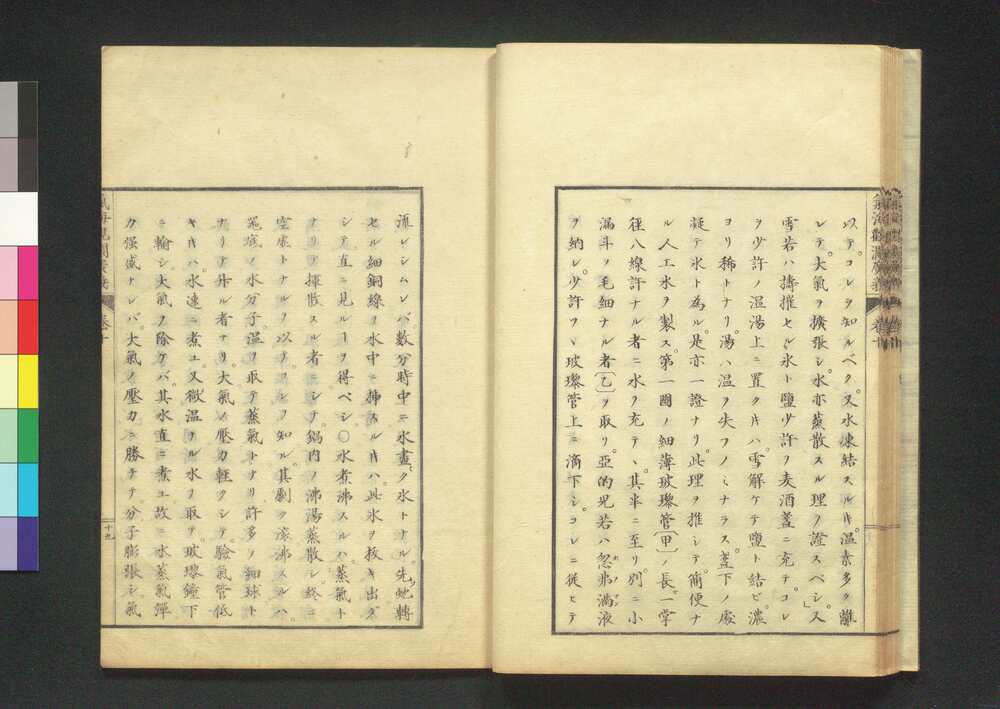 以テコレヲ知ルベク。又水凍結スルキ。温素多ク離
レテ。大氣ヲ擴張シ。水亦蒸散スル理ヲ證スベシ。又
雪若ハ擣摧セル氷ト鹽少許ヲ麦酒盞ニ充テ。コレ
ヲ少許ノ温湯上ニ置クキハ。雪解ケテ鹽ト結ビ。濃
ヨリ稀トナリ。湯ハ温ヲ失フノミナラス。盞下ノ處
凝テ氷ト為ル。是亦一證ナリ。此理ヲ推シテ。簡便ナ
ル人工氷ヲ製ス。第一圖ノ細薄玻璨管〔甲〕ノ長。一掌
徑八線許ナル者ニ水ヲ充テ、其半ニ至リ。別ニ小
漏斗ノ毛細ナル者〔乙〕ヲ取リ。亞的児若ハ忽弗満液
ヲ納レ。少許ヅヽ玻璨管上ニ滴下シ。コレニ従ヒテ
流レシムレバ。數分時中ニ水盡ク氷トナル。先ヅ蛇轉
セル細銅線ヲ水中ニ挿スルキハ。此氷ヲ抜キ出ダ
シテ。直ニ見ルヿヲ得ベシ〇水煮沸スルハ。蒸氣ト
ナリテ揮散スル者ニシテ。鍋内ノ沸湯蒸散シ。終ニ
空虚トナルヲ以テコレヲ知ル。其劇ク滚沸スルハ。
鍋底ノ水分子。温ヲ取テ蒸氣トナリ。許多ノ細球ト
ナリテ升ル者ナリ。大氣ノ壓力輕クシテ。驗氣管低
キキハ。水速ニ煮ユ。又微温ナル水ヲ取リ。玻璨鐘下
ニ輸シ。大氣ヲ除ケバ。其水直ニ煮ユ。故ニ水蒸氣彈
力强盛ナレバ。大氣ノ壓力ニ勝テテ分子膨張シ。氣
十九